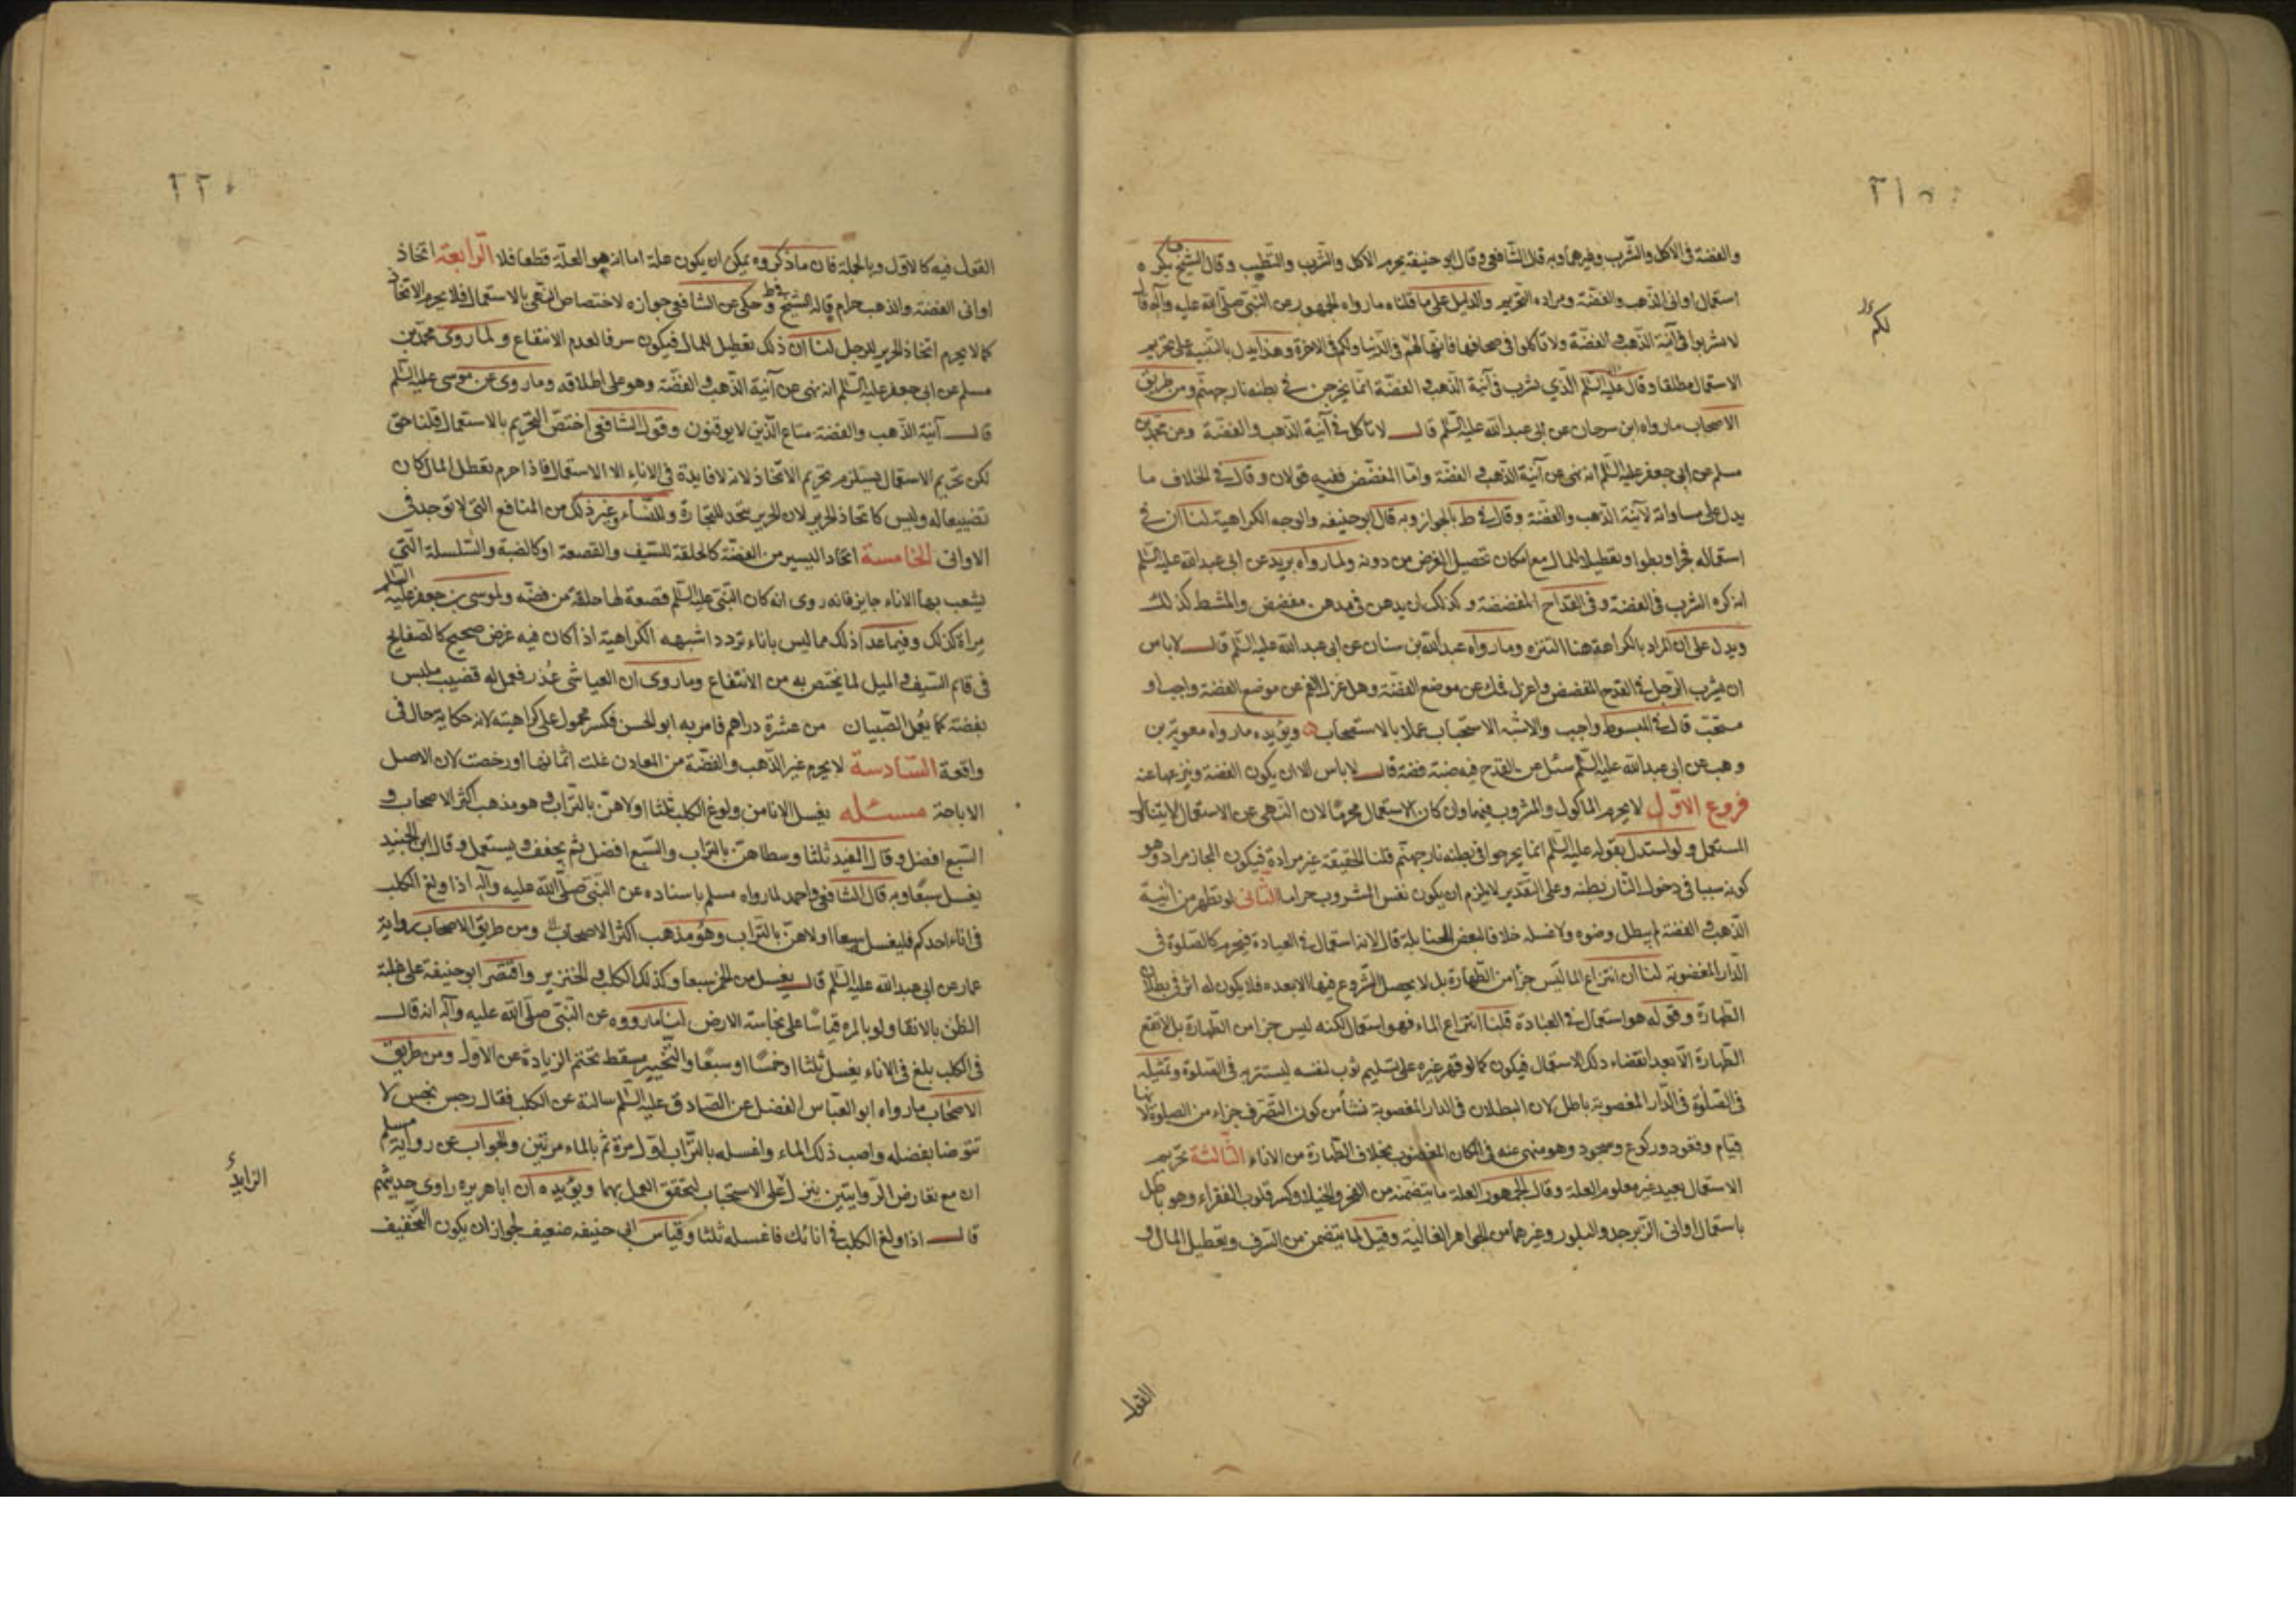 والفضة في الاكل والشرب وغيرهما وبه قال الشافعي وقال ابو حنيفة يحرم الاكل والشرب والتطيب وقال الشيخ يكره
استعمال اواني الذهب والفضة ومراده التحريم والدليل على ما قلناه مارواه الجمهور عن النبي صلى الله عليه وآله قال
لا تشربوا في آنية الذهب والفضة ولا تاكلوا في صحافها فانها لهم في الدنيا ولكم في الاخرة وهذا يدل بالتنبيه على تحريم
الاستعمال مطلقا وقال عليه السلم الذي يشرب في آنية الذهب والفضة انما يجرجر في بطنه نار جهنم ومن طريق
الاصحاب مارواه ابن سرحان عن ابي عبدالله عليه السلم قال لا تاكل في آنية الذهب والفضة وعن محمد بن
مسلم عن ابي جعفر عليه السلم انه نهى عن آنية الذهب والفضة واما المفضض ففيه قولان وقال في الخلاف ما
يدل على مساواته لآنية الذهب والفضة وقال في ط بالجواز وبه قال ابو حنيفه والوجه الكراهية لنا ان في
استعماله فخرا وبطرا وتعطيلا للمال مع امكان تحصيل الغرض من دونه ولما رواه بريد عن ابي عبدالله عليه السلم
انه كره الشرب في الفضة وفي القداح المفضضة وكذلك ان يدهن في مدهن مفضض والمشط كذلك
ويدل على ان المراد بالكراهة هنا التنزه ومارواه عبدالله بن سنان عن ابي عبدالله عليه السلم قال لا باس
ان يشرب الرجل في القدح المفضض واعزل فمك عن موضع الفضة وهل عزل الفم عن موضع الفضة واجب او
مستحب قال في المبسوط واجب والاشبه الاستحباب عملا بالاستصحاب ويؤيده مارواه معوية بن
وهب عن ابي عبدالله عليه السلم سئل عن القدح فيه ضبة فضة قال لا باس الا ان يكون الفضة ونيزعها عنه
فروع الاول لا يحرم الماكول والمشروب فيهما وان كان الاستعمال محرما لان النهي عن الاستعمال لا يتناول
المستعمل ولو استدل بقوله عليه السلم انما يجرجر في بطنه نار جهنم قلنا الحقيقة غير مرادة فيكون المجاز مراد وهو
كونه سببا في دخول النار بطنه وعلى التقدير لا يلزم ان يكون نفس المشروب حراما الثاني لو تطهر من آنية
الذهب والفضة لم يبطل وضوه ولا غسله خلافا لبعض الحنابلة قال لانه استعمال في العبادة فيحرم كالصلوة في
الدار المغضوبة لنا ان انتزاع الماء ليس جزأ من الطهارة بل لا يحصل الشروع فيها الا بعده فلا يكون له اثر في بطلان
الطهارة وقوله هو استعمال في العبادة قلنا انتزاع الماء فهو استعمال لكنه ليس جزأ من الطهارة بل لا تقع
الطهارة الا بعد انقضاء ذلك الاستعمال فيكون كما لو قهر غيره على تسليم ثوب لنفسه ليستتر به في الصلوة وتمثيله
في الصلوة في الدار المغصوبة باطل لان البطلان في الدار المغصوبة نشأ من كون التصرف جزاء من الصلوة لانها
قيام وقعود وركوع وسجود وهو منهي عنه في المكان المغصوب بخلاف الطهارة من الاناء الثالثة تحريم
الاستعمال بعيد غير معلوم العلة وقال الجمهور العلة ما يتضمنه من الفخر والخيلاء وكسر قلوب الفقراء وهو باطل
باستعمال اواني الزبرجد والبلور وغيرهما من الجواهر الغالية وقيل لما يتضمن من السرف وتعطيل المال و
القول
٢١٥
لكم
٢٢٠
القول فيه كالاول وبالجملة فان ماذكروه يمكن ان يكون علة اما انه هو العلة قطعا فلا الرابعة اتخاذ
اواني الفضة والذهب حرام قاله الشيخ في ط وحكى عن الشافعي جوازه لاختصاص النهي بالاستعمال فلا يحرم الاتخاذ
كما لا يحرم اتخاذ الحرير للرجل لنا ان ذلك تعطيل للمال فيكون سرفا لعدم الانتفاع ولما روى محمد بن
مسلم عن ابي جعفر عليه السلم انه نهى عن آنية الذهب والفضة وهو على اطلاقه وماروى عن موسى عليه السلم
قال آنية الذهب والفضة متاع الذين لا يوقنون وقول الشافعي اختص التحريم بالاستعمال قلنا حق
لكن تحريم الاستعمال يستلزم تحريم الاتخاذ لانه لا فايدة في الاناء الا الاستعمال فاذا حرم تعطل المال كان
تضييعا له وليس كاتخاذ الحرير لان الحرير يتخذ للتجارة وللنساء وغير ذلك من المنافع التي لا توجد في
الاواني الخامسة اتخاذ اليسير من الفضة كالحلقة للسيف والقصعة او كالضبة والسلسلة التي
يشعب بها الاناء جايز فانه روى انه كان للنبي عليه السلم قصعة لها حلقة من فضه ولموسى بن جعفر عليه السلم
مراة كذلك وفيما عدا ذلك مما ليس باناء تردد اشبهه الكراهية اذا كان فيه غرض صحيح كالصفايح
في قائم السيف والميل لما يختص به من الانتفاع وماروى ان العباشى عذر فعمل له قضيب ملبس
بفضة كما يعمل الصبيان من عشرة دراهم فامر به ابو الحسن فكسر محمول على كراهيته لانه حكاية حال في
واقعة السادسة لا يحرم غير الذهب والفضة من المعادن غلت اثمانها او رخصت لان الاصل
الاباحة مسئله يغسل الانا من ولوغ الكلب ثلثا اولاهن بالتراب وهو مذهب اكثر الاصحاب و
السبع افضل وقال المفيد ثلثا وسطاهن بالتراب والسبع افضل ثم يجفف ويستعمل وقال ابن الجنيد
يغسل سبعا وبه قال الشافعي واحمد لما رواه مسلم باسناده عن النبي صلى الله عليه وآله اذا ولغ الكلب
في اناء احدكم فليغسل سبعا اولاهن بالتراب وهو مذهب اكثر الاصحاب ومن طريق الاصحاب رواية
عمار عن ابي عبدالله عليه السلم قال يغسل من الخمر سبعا وكذلك الكلب والخنزير واقتصر ابو حنيفة على غلبة
الظن بالانقا ولو بالمرة قياسا على نجاسة الارض لنا مارووه عن النبي صلى الله عليه وآله انه قال
في الكلب يلغ في الاناء يغسل ثلثا او خمسا او سبعا والتخيير يسقط تحتم الزيادة عن الاول ومن طريق
الاصحاب مارواه ابو العباس الفضل عن الصادق عليه السلم سالته عن الكلب فقال رجس نجس لا
تتوضا بفضله واصب ذلك الماء واغسله بالتراب اول مرة ثم بالماء مرتين والجواب عن رواية مسلم
ان مع تعارض الروايتين ينزل على الاستحباب ليتحقق العمل بهما ويؤيده ان ابا هريره راوى حديثهم
قال اذا ولغ الكلب في انائك فاغسله ثلثا وقياس ابي حنيفه ضعيف لجواز ان يكون التخفيف
الزايد